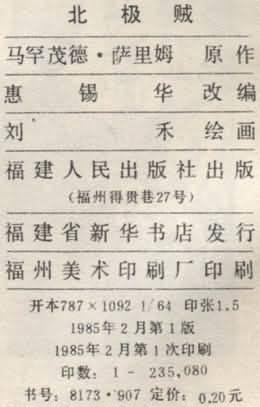 北极贼
马罕茂德·萨里姆 原作
惠锡华改编
刘禾绘画
福建人民出版社出版
(福州得贵巷27号)
福建省新华书店发行
福州美术印刷厂印刷
开本787×1092 1/64 印张1.5
1985年2月第1版
1985年2月第1次印刷
印数: 1-235,080
书号: 8173·907 定价: 0.20元